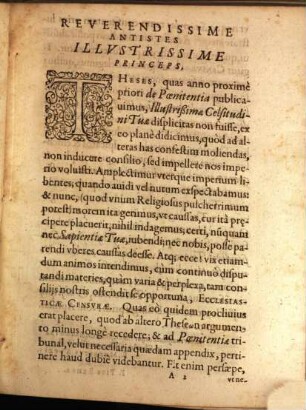 REVERENDISSIME
ANTISTES
ILLVSTRISSIME
PRINCEPS,
THESES, quas anno proximè
priori de Pœnitentia publica-
uimus, Illustrißimæ Celsitudi-
ni Tuæ displicitas non fuisse, ex
eo planè didicimus, quòd ad al-
teras has confestim moliendas,
non inducere consilio, sed impellere nos impe-
rio voluisti. Amplectimur vterque imperium li-
bentes; quando auidi vel nutum exspectabamus:
& nunc, (quod vnum Religiosus pulcherrimum
potest) morem ita gerimus, vt caussas, cur ità præ-
cipere placuerit, nihil indagemus; certi, nusquam
nec Sapientiæ Tuæ, iubendi; nec nobis, posse pa-
rendi vberes caussas deesse. Atq; ecce! vix etiam-
dum animos intendimus, cùm continuò dispu-
tandi materies, quàm varia & perplexa, tam con-
silijs nostris ostendit se opportuna, ECCLESIAS-
TICÆ CENSVRÆ. Quas eò quidem procliuius
erat placere, quod ab altero Theseon argumen-
to minus longè recedere; & ad Pœnitentiæ tri-
bunal, velut necessaria quædam appendix, perti-
nere haud dubiè videbantur. Et enim persæpe,
A 2